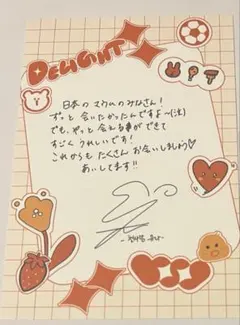 DELIGHT
日本の マクムの みなさん!
ずっと 会いたかったんですよ~(泣)
でも、やっと 会える事ができて
すごく うれしいです!
これからも たくさん お会いしましょう♡
あいしてます!!